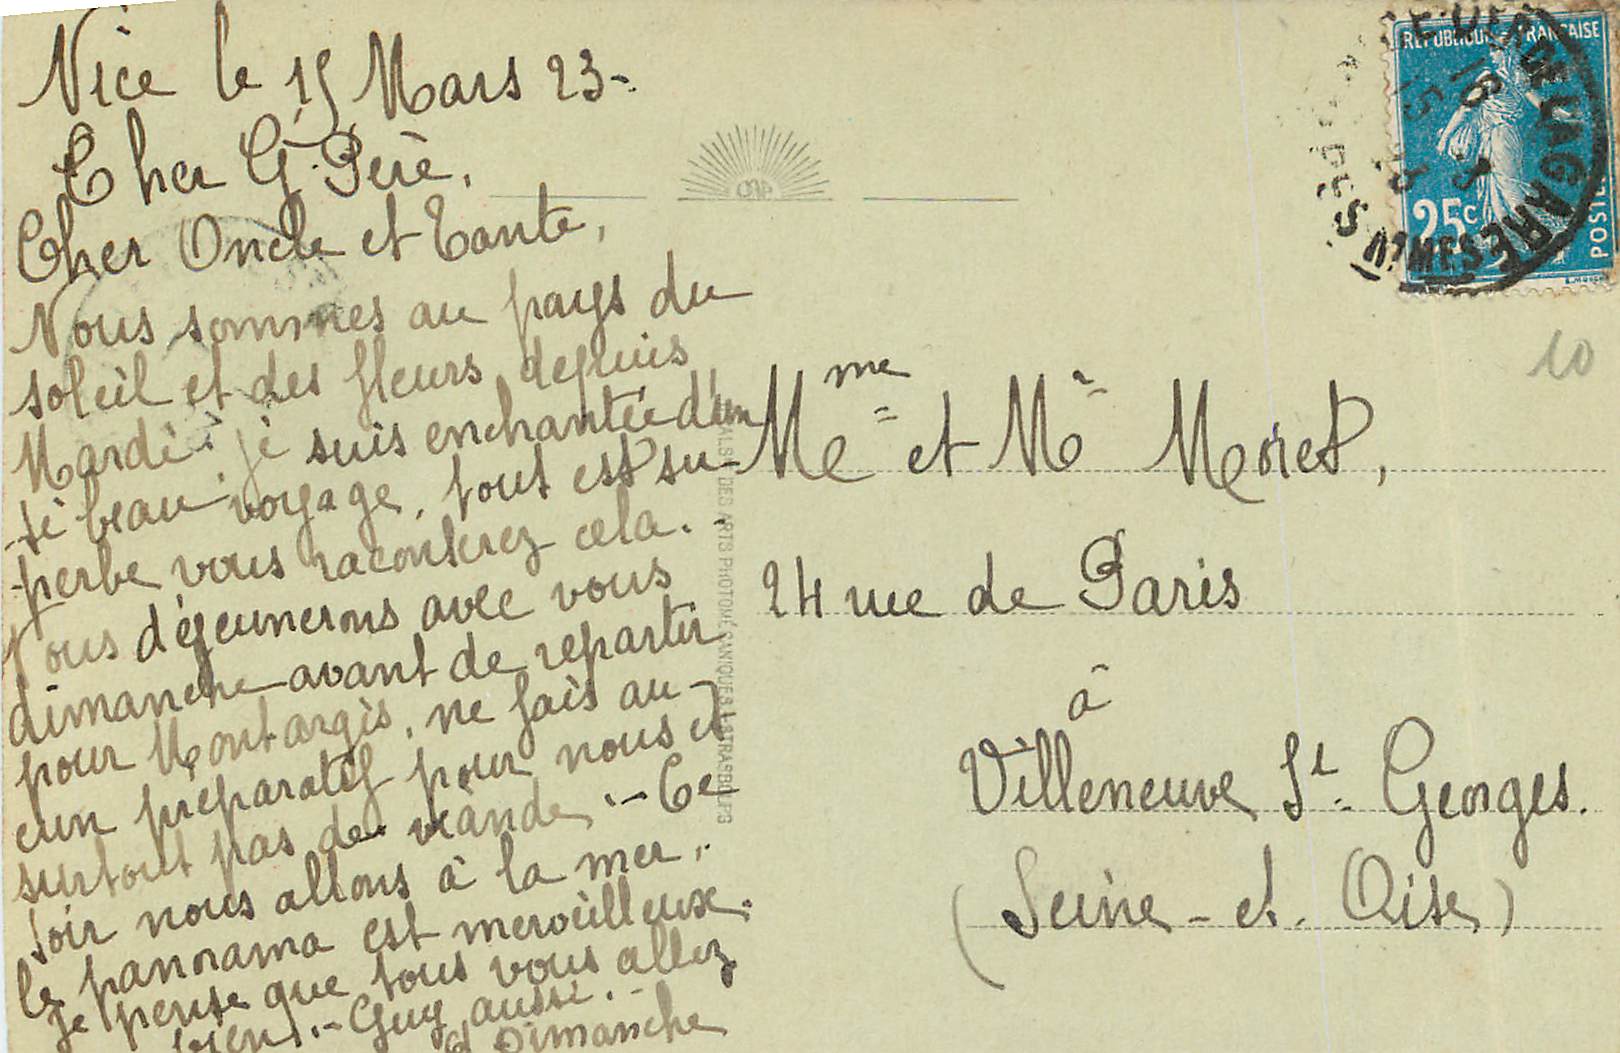 Nice le 15 Mars 23-
Cher G. Père,
Cher Oncle et Tante,
Nous sommes au pays du
soleil et des fleurs depuis
Mardi. je suis enchantée d'un
si beau voyage, tout est su-
perbe vous raconterez cela.
Nous déjeunerons avec vous
dimanche avant de repartir
pour Montargis, ne fais au-
cun préparatif pour nous et
surtout pas de viande.- Ce
soir nous allons à la mer,
le panorama est merveilleux.
je pense que tous vous allez
bien.- Guy aussi.-
à Dimanche
Mme et Mr Moret,
24 rue de Paris
à
Villeneuve St. Georges.
(Seine-et-Oise)
REPUBLIQUE FRANÇAISE
25c
POSTES
DES ARTS PHOTOMÉCANIQUES
10